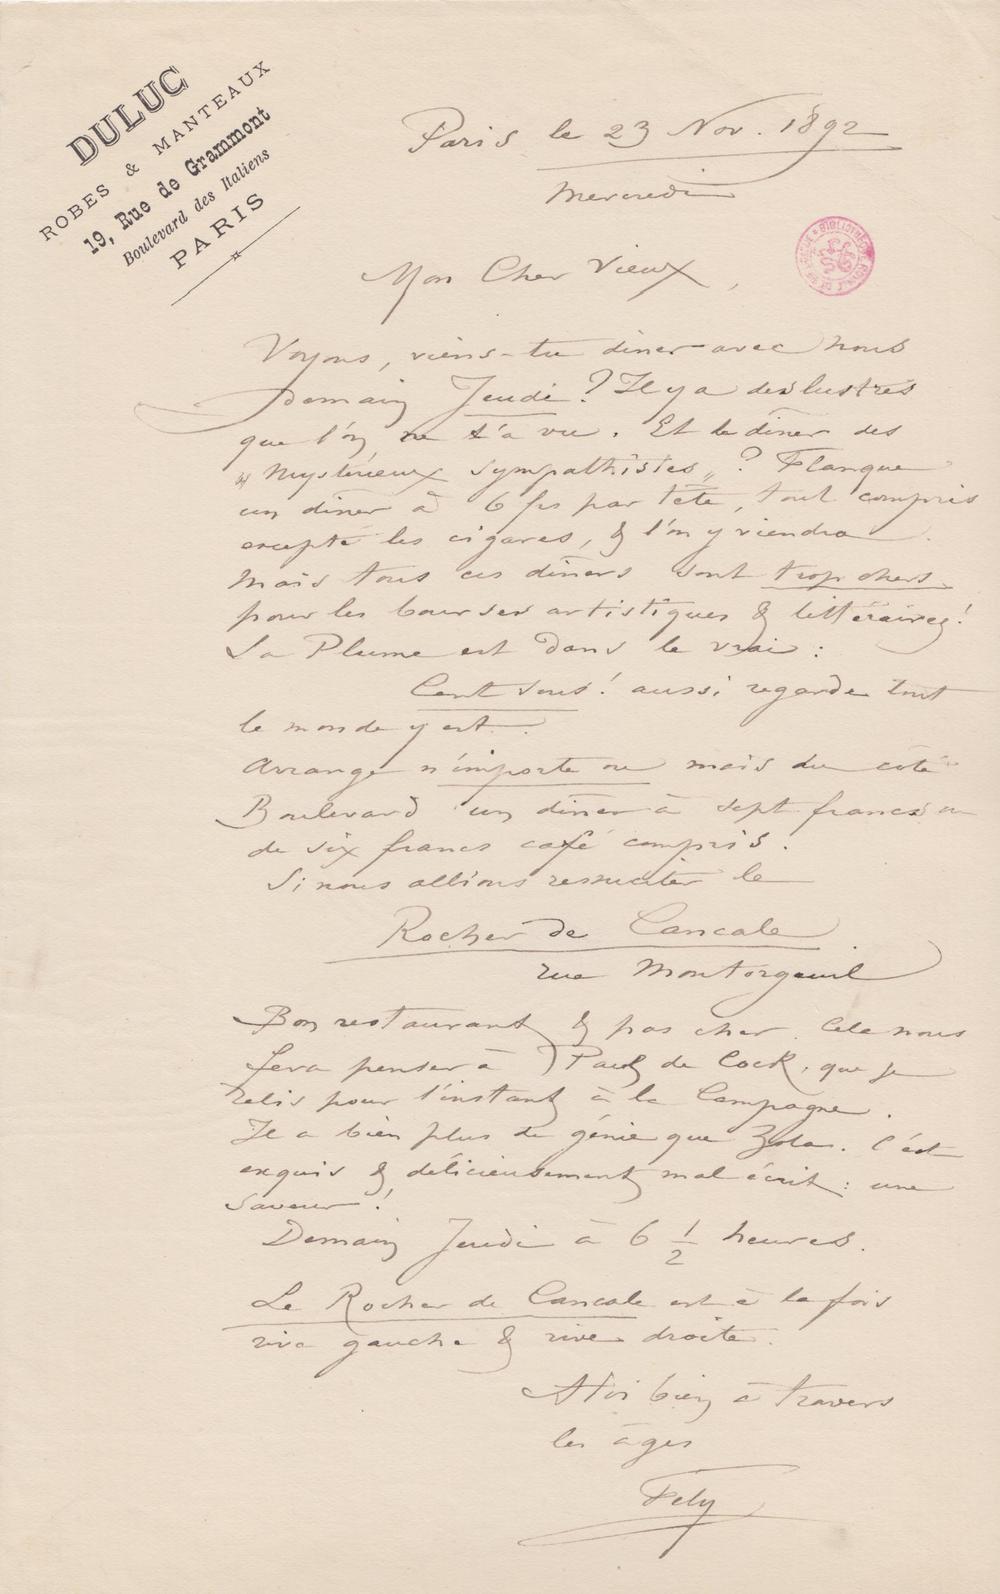 DULUC
ROBES & MANTEAUX
19, Rue de Grammont
Boulevard des Italiens
PARIS
Paris le 23 Nov. 1892
Mercredi
Mon Cher Vieux,
Voyons, viens-tu diner avec nous
Demain Jeudi ? Il y a des lustres
que l'on ne t'a vu. Et le diner des
« Mystérieux Sympathistes » ? Flanque
un diner à 6 frs par tête, tout compris
excepté les cigares, & l'on y viendra.
Mais tous ces diners sont trop chers
pour les bourses artistiques & littéraires !
La Plume est dans le vrai :
Cent sous ! aussi regarde tout
le monde y est.
Arrange n'importe ou mais du coté
Boulevard un diner à sept francs ou
de six francs café compris.
Si nous allions ressusciter le
Rocher de Cancale
rue Montorgeuil
Bon restaurant & pas cher. Cela nous
fera penser à Paul de Cock, que je
relis pour l'instant à la Campagne.
Il a bien plus de génie que Zola. C'est
exquis & délicieusement mal écrit : une
saveur !
Demain Jeudi à 6 1/2 heures.
Le Rocher de Cancale est à la fois
rive gauche & rive droite.
A toi bien à travers
les âges
Fély